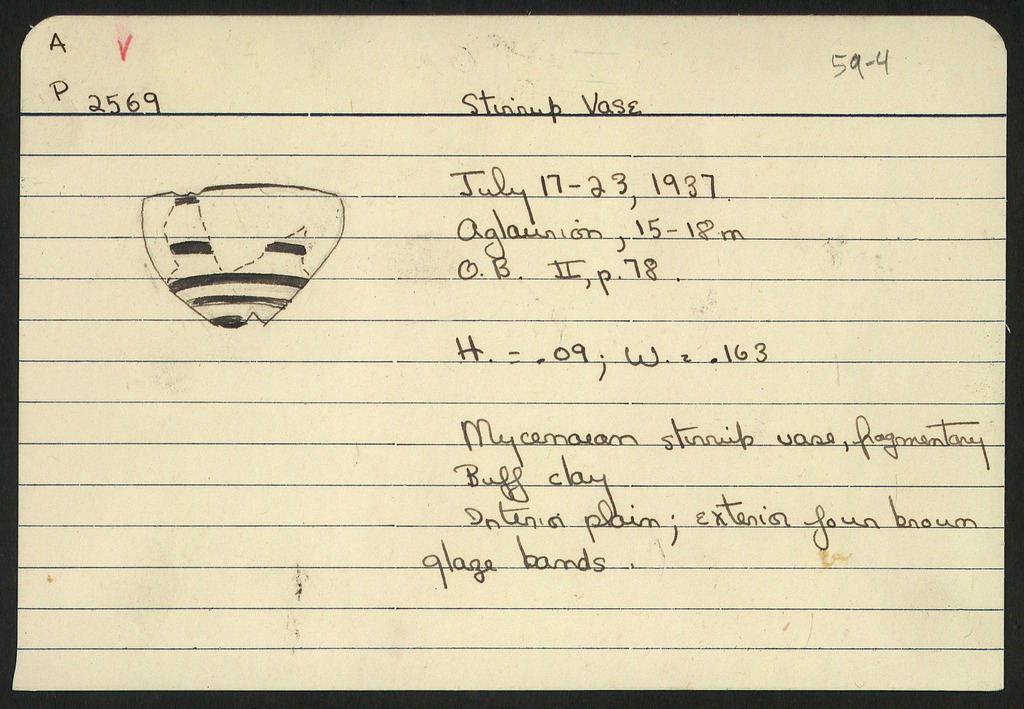 A
59-4
P 2569
Stirrup Vase
July 17-23, 1937
Aglaurion, 15-18m
O.B. II, p. 78.
H. = .09; W. = .163
Mycenaean stirrup vase, fragmentary
Buff clay
Interior plain; exterior four brown
glaze bands.